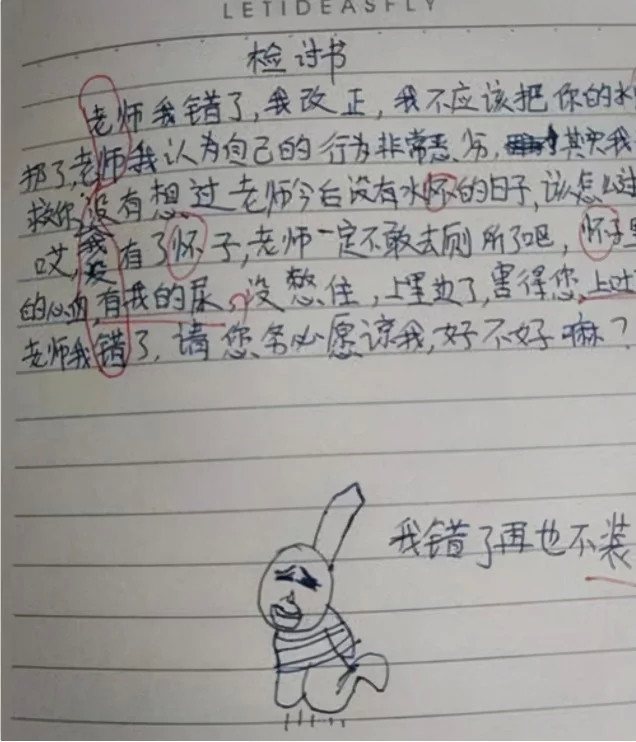 LETIDEASFLY
检讨书
老师我错了,我改正,我不应该把你的水
那了,老师我认为自己的行为非常恶劣,其实我
救你没有想过老师今后没有水怀的日子,该怎么过
哎,我没有了怀子,老师一定不敢去厕所了吧,怀子里
的心血,有我的尿,没憋住,上里边了,害得您,上吐
老师我错了,请您务必愿谅我,好不好嘛?
我错了再也不装